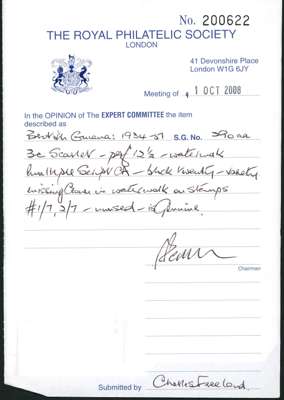 No. 200622
THE ROYAL PHILATELIC SOCIETY
LONDON
41 Devonshire Place
London W1G 6JY
Meeting of 1 OCT 2008
In the OPINION of The EXPERT COMMITTEE the item
described as
British Guiana: 1934-51 S.G. No. 290aa
3c Scarlet - perf 12½ - watermark
Multiple Script CA - block twenty - variety
missing Crown in watermark on stamps
#1/7, 2/7 - unused - is genuine.
Chairman
Submitted by Charles Freeland.